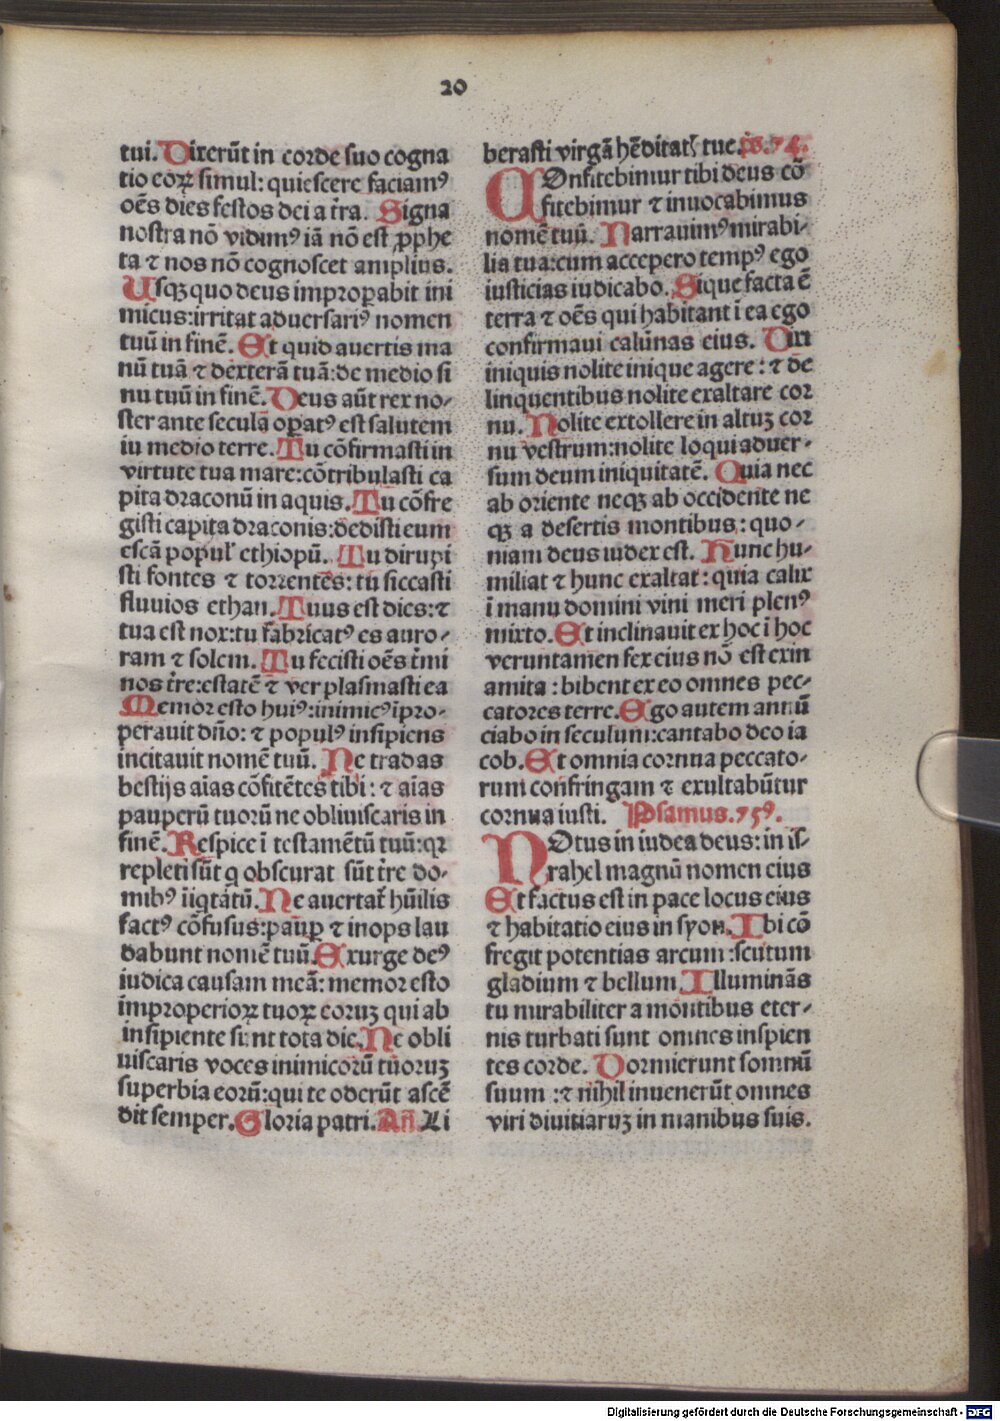 20
tui. Dixerūt in corde suo cogna
tio eoꝝ simul: quiescere faciamꝰ
oēs dies festos dei a t̄ra. Signa
nostra nō vidimꝰ iā nō est ꝓphe
ta ⁊ nos nō cognoscet amplius.
Usqꝫ quo deus improꝑabit ini
micus: irritat aduersariꝰ nomen
tuū in finē. Et quid auertis ma
nū tuā ⁊ dexterā tuā: de medio si
nu tuū in finē. Deus aūt rex no⸗
ster ante secula oꝑatꝰ est salutem
in medio terre. Tu cōfirmasti in
virtute tua mare: cōtribulasti ca
pita draconū in aquis. Tu cōfre
gisti capita draconis: dedisti eum
escā popul' ethiopū. Tu dirupi
sti fontes ⁊ torrentes: tu siccasti
fluuios ethan. Tuus est dies: ⁊
tua est nox: tu fabricatꝰ es auro⸗
ram ⁊ solem. Tu fecisti oēs t̄mi
nos t̄re: estatē ⁊ ver plasmasti ea
Memor esto huiꝰ: inimicꝰ īpro⸗
perauit dn̄o: ⁊ populꝰ insipiens
incitauit nomē tuū. Ne tradas
bestijs aīas cōfitētes tibi: ⁊ aīas
pauperū tuorū ne obliuiscaris in
finē. Respice ī testamētū tuū: qꝛ
repleti sūt q obscurat sūt t̄re do⸗
mibꝰ īiqtatū. Ne auertat̄ hūilis
factꝰ cōfusus: pauꝑ ⁊ inops lau
dabunt nomē tuū. Exurge deꝰ
iudica causam meā: memor esto
improperioꝝ tuoꝝ eoruꝫ qui ab
insipiente sunt tota die. Ne obli
uiscaris voces inimicorū tuoruꝫ
superbia eorū: qui te oderūt ascē
dit semper. Gloria patri. Añ. Li
berasti virgā hēditatꝭ tue. ps. 74.
COnfitebimur tibi deus cō
fitebimur ⁊ inuocabimus
nomē tuū. Narrauimꝰ mirabi⸗
lia tua: cum accepero tempꝰ ego
iusticias iudicabo. Sique facta ē
terra ⁊ oēs qui habitant ī ea ego
confirmaui calūnas eius. Dixi
iniquis nolite inique agere: ⁊ de
linquentibus nolite exaltare cor
nu. Nolite extollere in altuꝫ cor
nu vestrum: nolite loqui aduer⸗
sum deum iniquitatē. Quia nec
ab oriente neqꝫ ab occidente ne
qꝫ a desertis montibus: quo⸗
niam deus iudex est. Hunc hu⸗
miliat ⁊ hunc exaltat: quia calix
ī manu domini vini meri plenꝰ
mixto. Et inclinauit ex hoc ī hoc
veruntamen fex eius nō est exin
amita: bibent ex eo omnes pec⸗
catores terre. Ego autem annū
ciabo in seculum: cantabo deo ia
cob. Et omnia cornua peccato⸗
rum confringam ⁊ exultabūtur
cornua iusti. Psamus. 75ꝰ.
NOtus in iudea deus: in is⸗
rahel magnū nomen eius
Et factus est in pace locus eius
⁊ habitatio eius in syon. Ibi cō
fregit potentias arcum: scutum
gladium ⁊ bellum Illuminās
tu mirabiliter a montibus eter⸗
nis turbati sunt omnes inspien
tes corde. Dormierunt somnū
suum: ⁊ nihil inuenerūt omnes
viri diuitiaruꝫ in manibus suis.
Digitalisierung gefördert durch die Deutsche Forschungsgemeinschaft - DFG